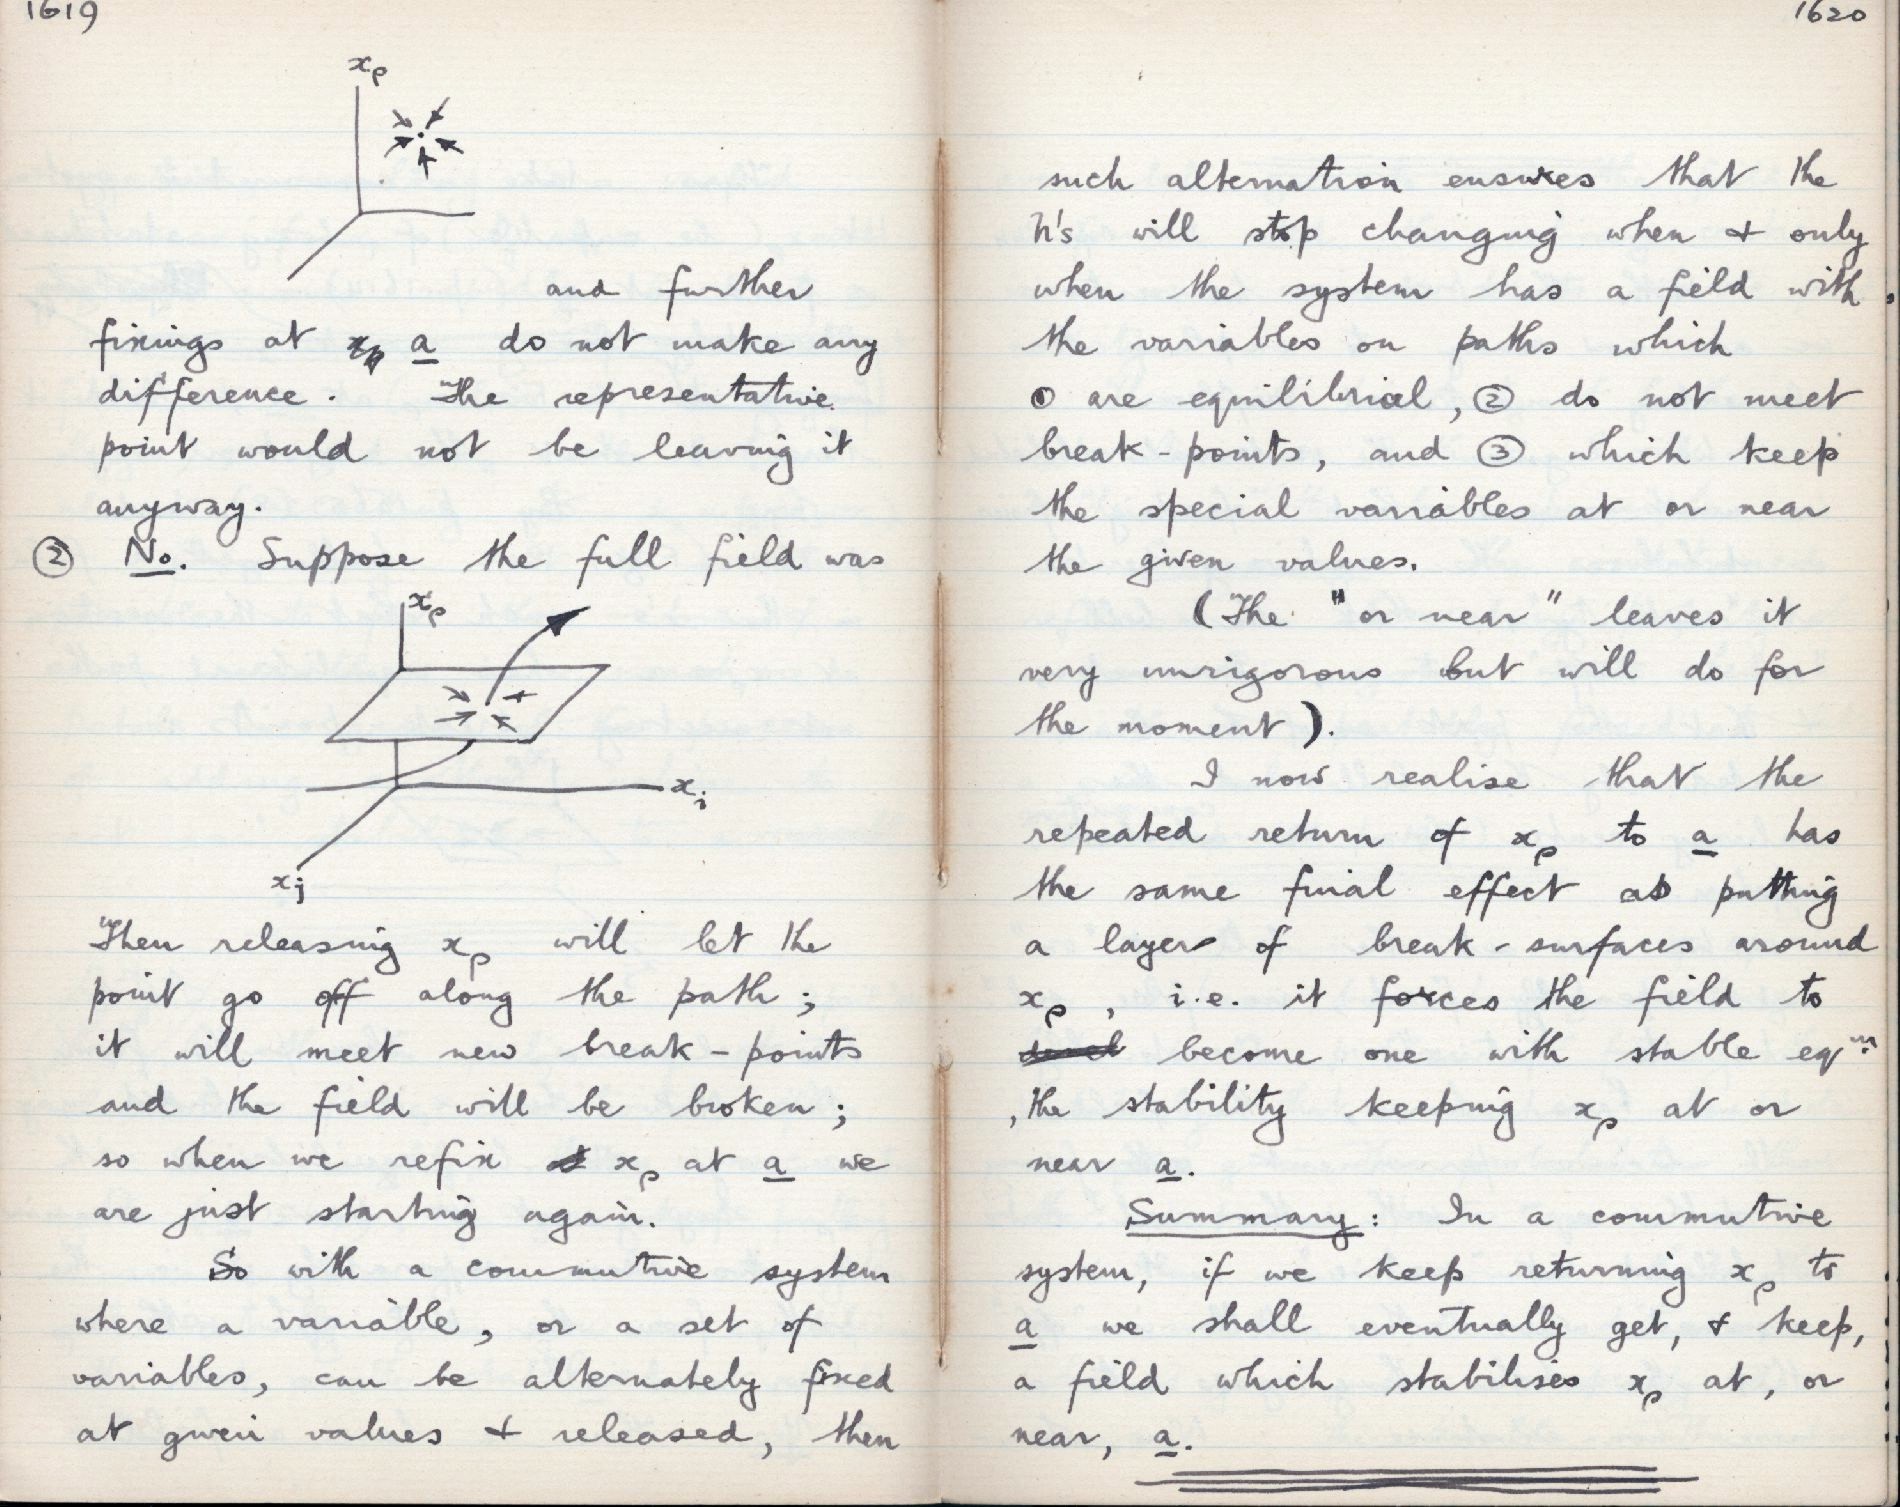 1619
xρ
and further
fixings at a do not make any
difference. The representative
point would not be leaving it
anyway.
② No. Suppose the full field was
xρ
xi
xj
Then releasing xρ will let the
point go off along the path;
it will meet new break-points
and the field will be broken;
so when we refix xρ at a we
are just starting again.
So with a commutive system
where a variable, or a set of
variables, can be alternately fixed
at given values & released, then
1620
such alternation ensures that the
h's will stop changing when & only
when the system has a field with
the variables on paths which
① are equilibrial, ② do not meet
break-points, and ③ which keep
the special variables at or near
the given values.
(The "or near" leaves it
very unrigorous but will do for
the moment).
I now realise that the
repeated return of xρ to a has
the same final effect as putting
a layer of break-surfaces around
xρ, i.e. it forces the field to
become one with stable eqm.
, the stability keeping xρ at or
near a.
Summary: In a commutive
system, if we keep returning xρ to
a we shall eventually get, & keep,
a field which stabilises xρ at, or
near, a.